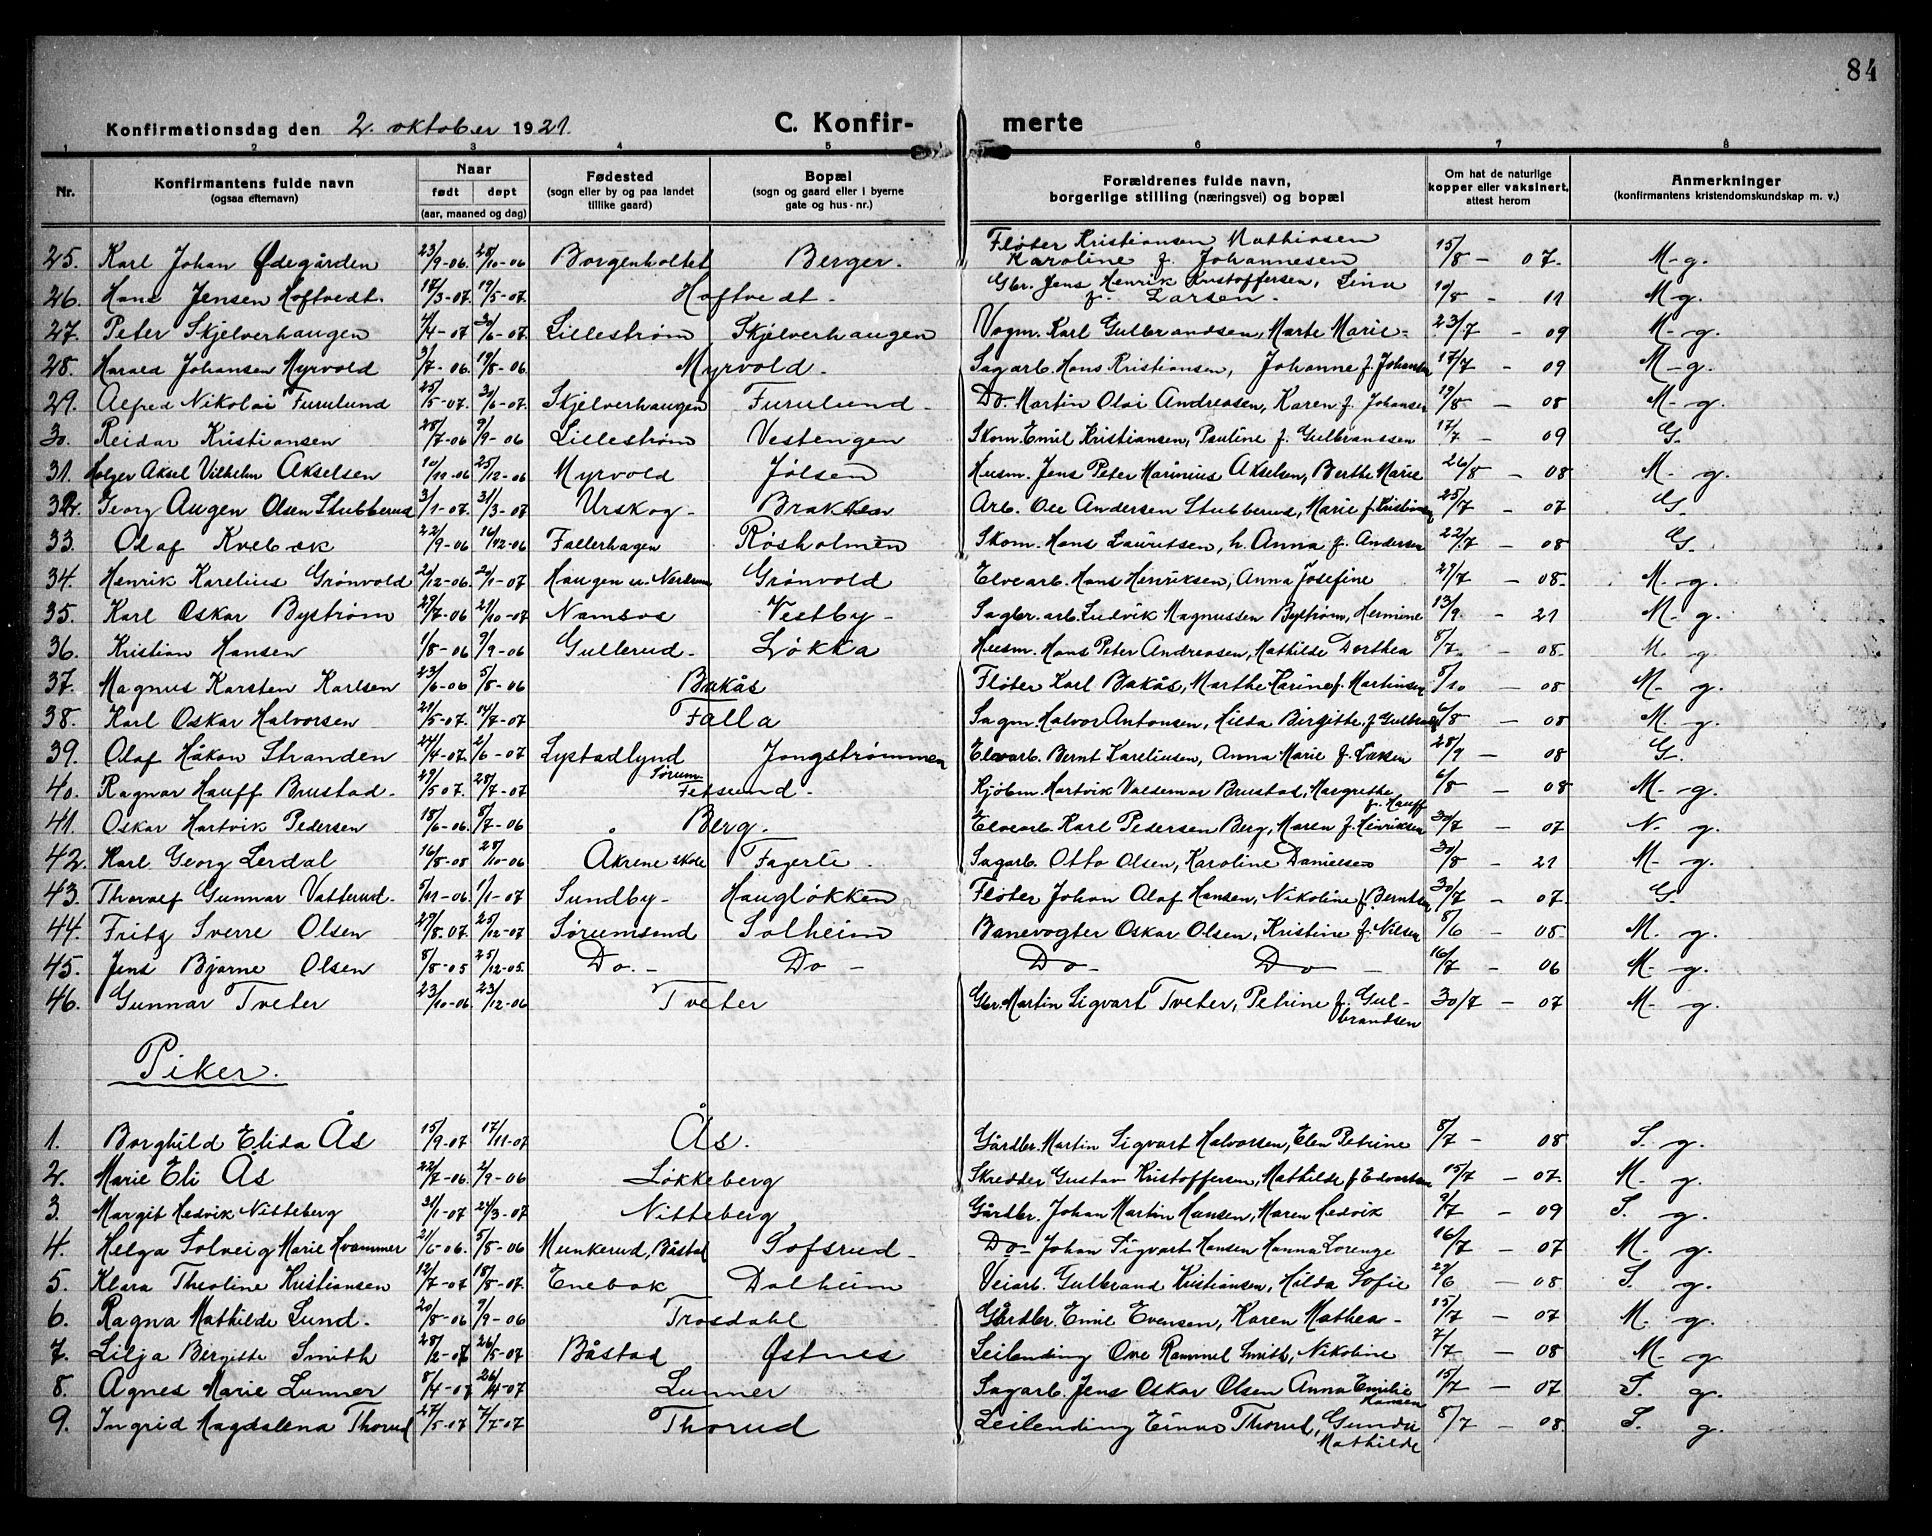 84
Konfirmationsdag den 2. oktober 1921.
C. Konfir- merte
1 2 3 4 5 6 7 8
Nr.
Konfirmantens fulde navn
(ogsaa efternavn)
Naar
født døpt
(aar, maaned og dag)
Fødested
(sogn eller by og paa landet
tillike gaard)
Bopæl
(sogn og gaard eller i byerne
gate og hus-nr.)
Forældrenes fulde navn,
borgerlige stilling (næringsvei) og bopæl
Om hat de naturlige
kopper eller vaksinert,
attest herom
Anmerkninger
(konfirmantens kristendomskundskap m. v.)
25. Karl Johan Ødegården 23/9-06. 28/10-06 Borgenholtet Berger. Fløter Kristiansen Mathiasen Karoline f. Johannesen 15/8 - 07. M-g.
26. Hans Jensen Hoftvedt. 17/3-07. 19/5-07. Hoftvedt. Gbr. Jens Henrik Kristoffersen, Lina f. Larsen. 10/8 - 11 Mg.
27. Peter Skjelverhaugen /4-07 30/6-07. Lillestrøm Skjelverhaugen Vogm. Karl Gulbrandsen, Marte Marie 23/7 - 09 M-g.
28. Harald Johansen Myrvold 3/7-06. 19/8-06. Myrvold. Sagarb. Hans Kristiansen, Johanne f. Johansen 17/7 - 09 M-g.
29. Alfred Nikolai Furulund 25/5-07. 30/6-07. Skjelverhaugen Furulund. Do. Martin Olai Andreasen, Karen f. Johansen 19/8 - 08 M- g.
30. Reidar Kristiansen 28/7-06 9/9-06 Lillestrøm Vestengen Skom. Emil Kristiansen, Pauline f. Gulbranssen 17/7 - 09 G.
31. Holger Aksel Vilhelm Akselsen 10/11-06 25/12-06 Myrvold Jølsen Husm. Jens Peter Marinius Akselsen, Berthe Marie 26/8 - 08 M- g.
32. Georg Augen Olsen Stubberud 3/1-07. 31/3-07 Urskog- Brakken Arb. Ole Andersen Stubberud, Marie f. Kristiansen 25/7 - 07 G.
33. Olaf Kvebæk 22/9-06 16/12-06 Fallerhagen Røsholmen Skom. Hans Lauritsen, h. Anna f. Andersen 22/7 - 08 G.
34. Henrik Karelius Grønvold 21/12-06. 20/1-07 Haugen u. Nerlum Grønvold Elvearb. Hans Henriksen, Anna Josefine 29/7 - 08. M. g.
35. Karl Oskar Bystrøm 29/7-06 21/10-07 Namsos Vestby- Sagbr. arb. Ludvik Magnussen Bystrøm, Hermine 13/9. - 21 M. g.
36. Kristian Hansen 1/8-06 9/9-06 Gullerud. Løkka Husm. Hans Peter Andreasen, Mathilde Dorthea 8/7. - 08. M. g
37. Magnus Karsten Karlsen 23/6-06 5/8-06 Bakås Fløter Karl Bakås, Marthe Karine f. Martinsen 8/10 - 08 M- g.
38. Karl Oskar Halvorsen 29/5-07. 14/7-07 Falla Sagm. Halvor Antonsen, Hilda Birgitte f. Gulbrands 6/8 - 08 M. g.
39. Olaf Håkon Stranden 24/4-07. 2/6-07 Lystadlynd Jongstrømmen Elvearb. Bernt Kareliusen, Anna Marie f. Larsen 28/9 - 08 G.
40. Ragnar Hauff Brustad. 29/5 07. 28/7-07 Sørum Fetsund. Kjøbm. Hartvik Valdemar Brustad, Margrethe f. Hauff 6/8 - 08 M- g.
41. Oskar Hartvik Pedersen 18/6-06. 8/7-06 Berg. Elvearb. Karl Pedersen Berg, Maren f. Henriksen 30/7 - 07 N. g.
42. Karl Georg Lerdal 16/8-08 28/10-06 Åkrene skole Fagerli. Sagarb. Otto Olsen, Karoline Danielsen 30/8 - 21 M- g.
43. Thoralf Gunnar Vatterud. 5/11-06. 1/1-07 Sundby- Haugløkken Fløter Johan Olaf Hansen, Nikoline f. Berntsen 30/7 - 07. G.
44. Fritz Sverre Olsen 29/8.07. 25/12-07 Sørumsand Solheim Banevogter Oskar Olsen, Kristine f. Nilsen 8/6 - 08. M. g.
45. Jens Bjarne Olsen 8/8-05 25/12-05. Do. - Do - Do - Do - 16/7 - 06 M- g.
46. Gunnar Tveter 23/10-06. 23/12-06 Tveter Gbr. Martin Sigvart Tveter, Petrine f. Gul-brandsen 30/7 - 07 M- g.
Piker.
1. Borghild Elida Ås 15/9-07 17/11-07 Ås. Gårdbr. Martin Sigvart Halvorsen, Elen Petrine 8/7 - 08 S. g.
2. Marie Eli Ås 22/7-06. 2/9-06 Løkkeberg Skredder Gustav Kristoffersen, Mathilde f. Edvartsen 15/7 - 07. M. g.
3. Margit Hedvik Nitteberg 31/1-07 24/3-07 Nitteberg Gårdbr. Johan Martin Hansen, Maren Hedvik 9/7 - 09 S. g.
4. Helga Solveig Marie Hvammer 21/6-06. 5/8-06 Munkerud, Båstad Sofsrud. Do- Johan Sigvart Hansen Hanna Lorense 16/7 - 07 M. g.
5. Klara Theoline Kristiansen 12/7-07 18/8-07. Enebak Dalheim Veiarb. Gulbrand Kristiansen, Hilda Sofie 29/6 - 08 S. g.
6. Ragna Mathilde Lund. 20/8-06 9/9-06 Trosdahl Gårdbr. Emil Evensen, Karen Mathea- 15/7 - 07 M. g.
7. Lilja Bergitte Smith 28/2-07 26/5-07 Båstad Østnes Leilending Ove Rammel Smith, Nikoline 7/7 - 08 M- g
8. Agnes Marie Lunner 8/4-07. 26/4-07 Lunner Sagarb. Jens Oskar Olsen Anna Emilie Hansen 15/7 - 07 S. g.
9. Ingrid Magdalena Thorud 27/5-07 7/7-07 Thorud Leilending Einar Thorud, Gunda Mathilde 8/7 - 08. S. g.